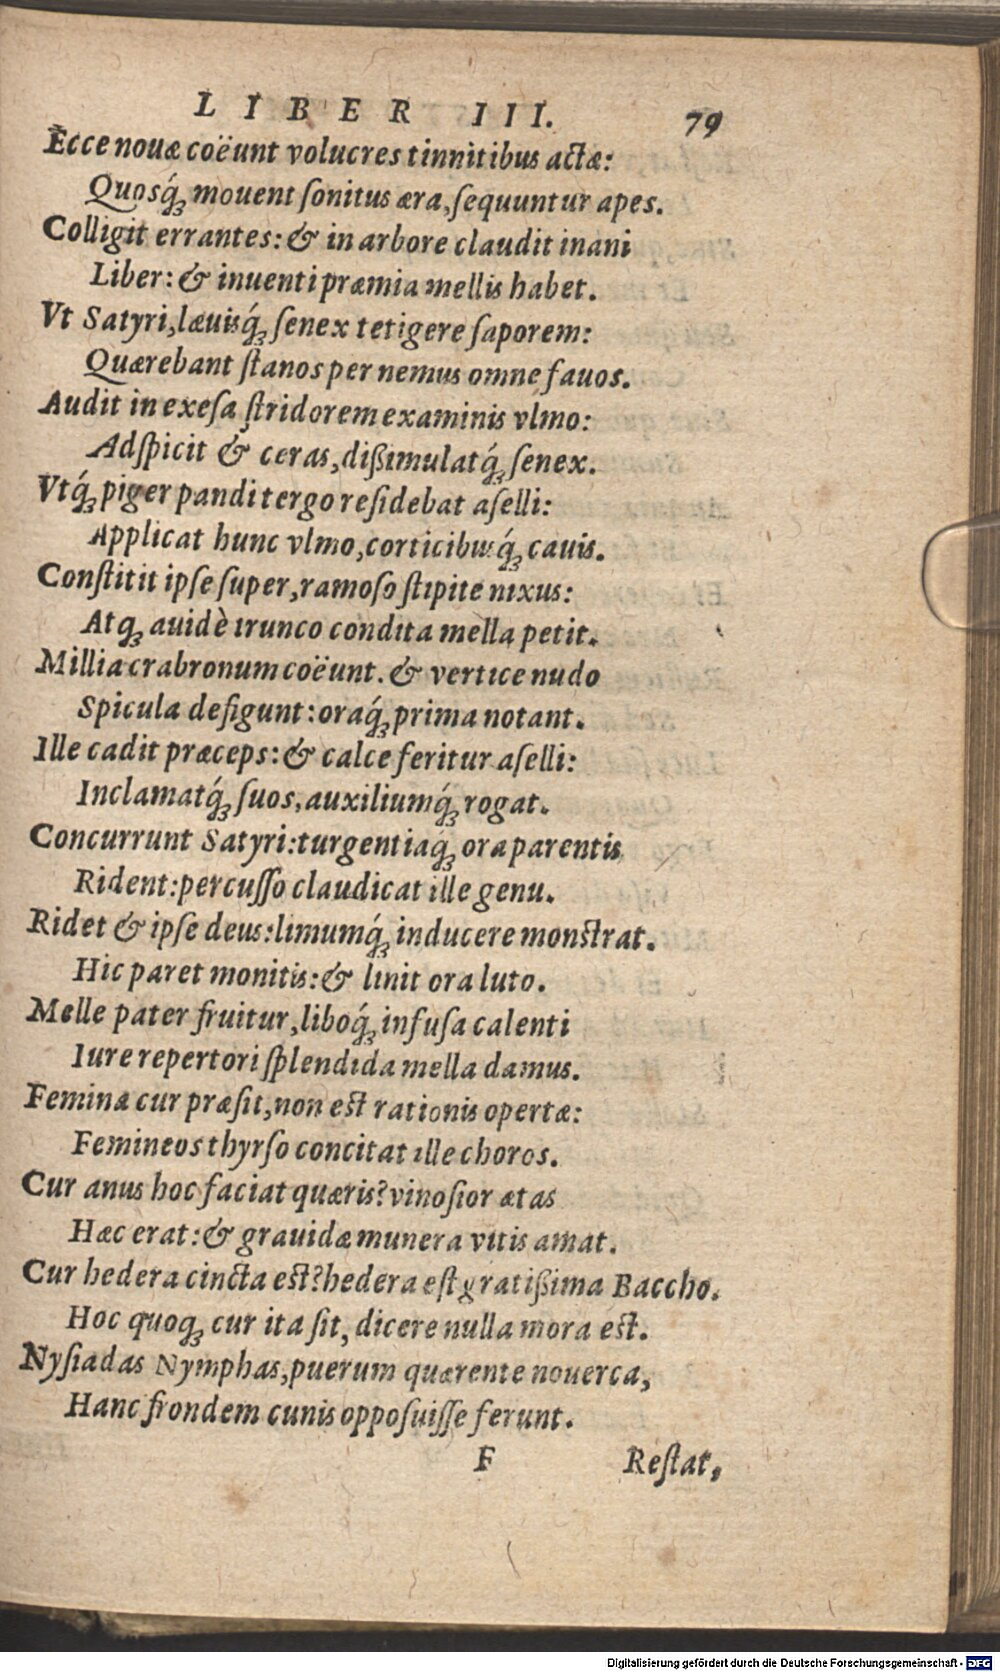 LIBER III. 79
Ecce nouæ coëunt volucres tinnitibus actæ:
Quosq́; mouent ſonitus æra, ſequuntur apes.
Colligit errantes: & in arbore claudit inani
Liber: & inuenti præmia mellis habet.
Vt Satyri, læuisq́; ſenex tetigere ſaporem:
Quærebant flanos per nemus omne fauos.
Audit in exeſa ſtridorem examinis vlmo:
Adſpicit & ceras, dißimulatq́; ſenex.
Vtq́; piger pandi tergo reſidebat aſelli:
Applicat hunc vlmo, corticibusq́; cauis.
Conſtitit ipſe ſuper, ramoſo ſtipite nixus:
Atq; auidè trunco condita mella petit.
Millia crabronum coëunt. & vertice nudo
Spicula defigunt: oraq́; prima notant.
Ille cadit præceps: & calce feritur aſelli:
Inclamatq́; ſuos, auxiliumq́; rogat.
Concurrunt Satyri: turgentiaq́; ora parentis
Rident: percuſſo claudicat ille genu.
Ridet & ipſe deus: limumq́; inducere monſtrat.
Hic paret monitis: & linit ora luto.
Melle pater fruitur, liboq́; infuſa calenti
Iure repertori ſplendida mella damus.
Femina cur præſit, non eſt rationis opertæ:
Femineos thyrſo concitat ille choros.
Cur anus hoc faciat quæris? vinoſior ætas
Hæc erat: & grauidæ munera vitis amat.
Cur hedera cincta eſt? hedera eſt gratißima Baccho.
Hoc quoq; cur ita ſit, dicere nulla mora eſt.
Nyſiadas Nymphas, puerum quærente nouerca,
Hanc frondem cunis oppoſuiſſe ferunt.
F Reſtat,
Digitalisierung gefördert durch die Deutsche Forschungsgemeinschaft - DFG